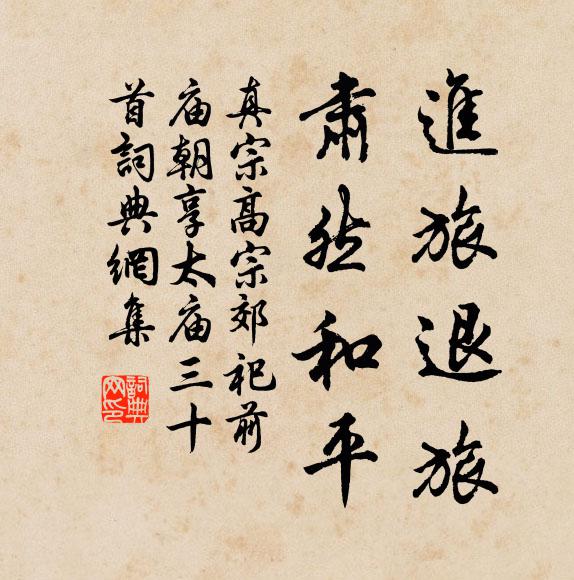 進旅退旅
肅然和平
真宗高宗郊祀前
庙朝享太庙三十
首詞典網集
詞典
网印